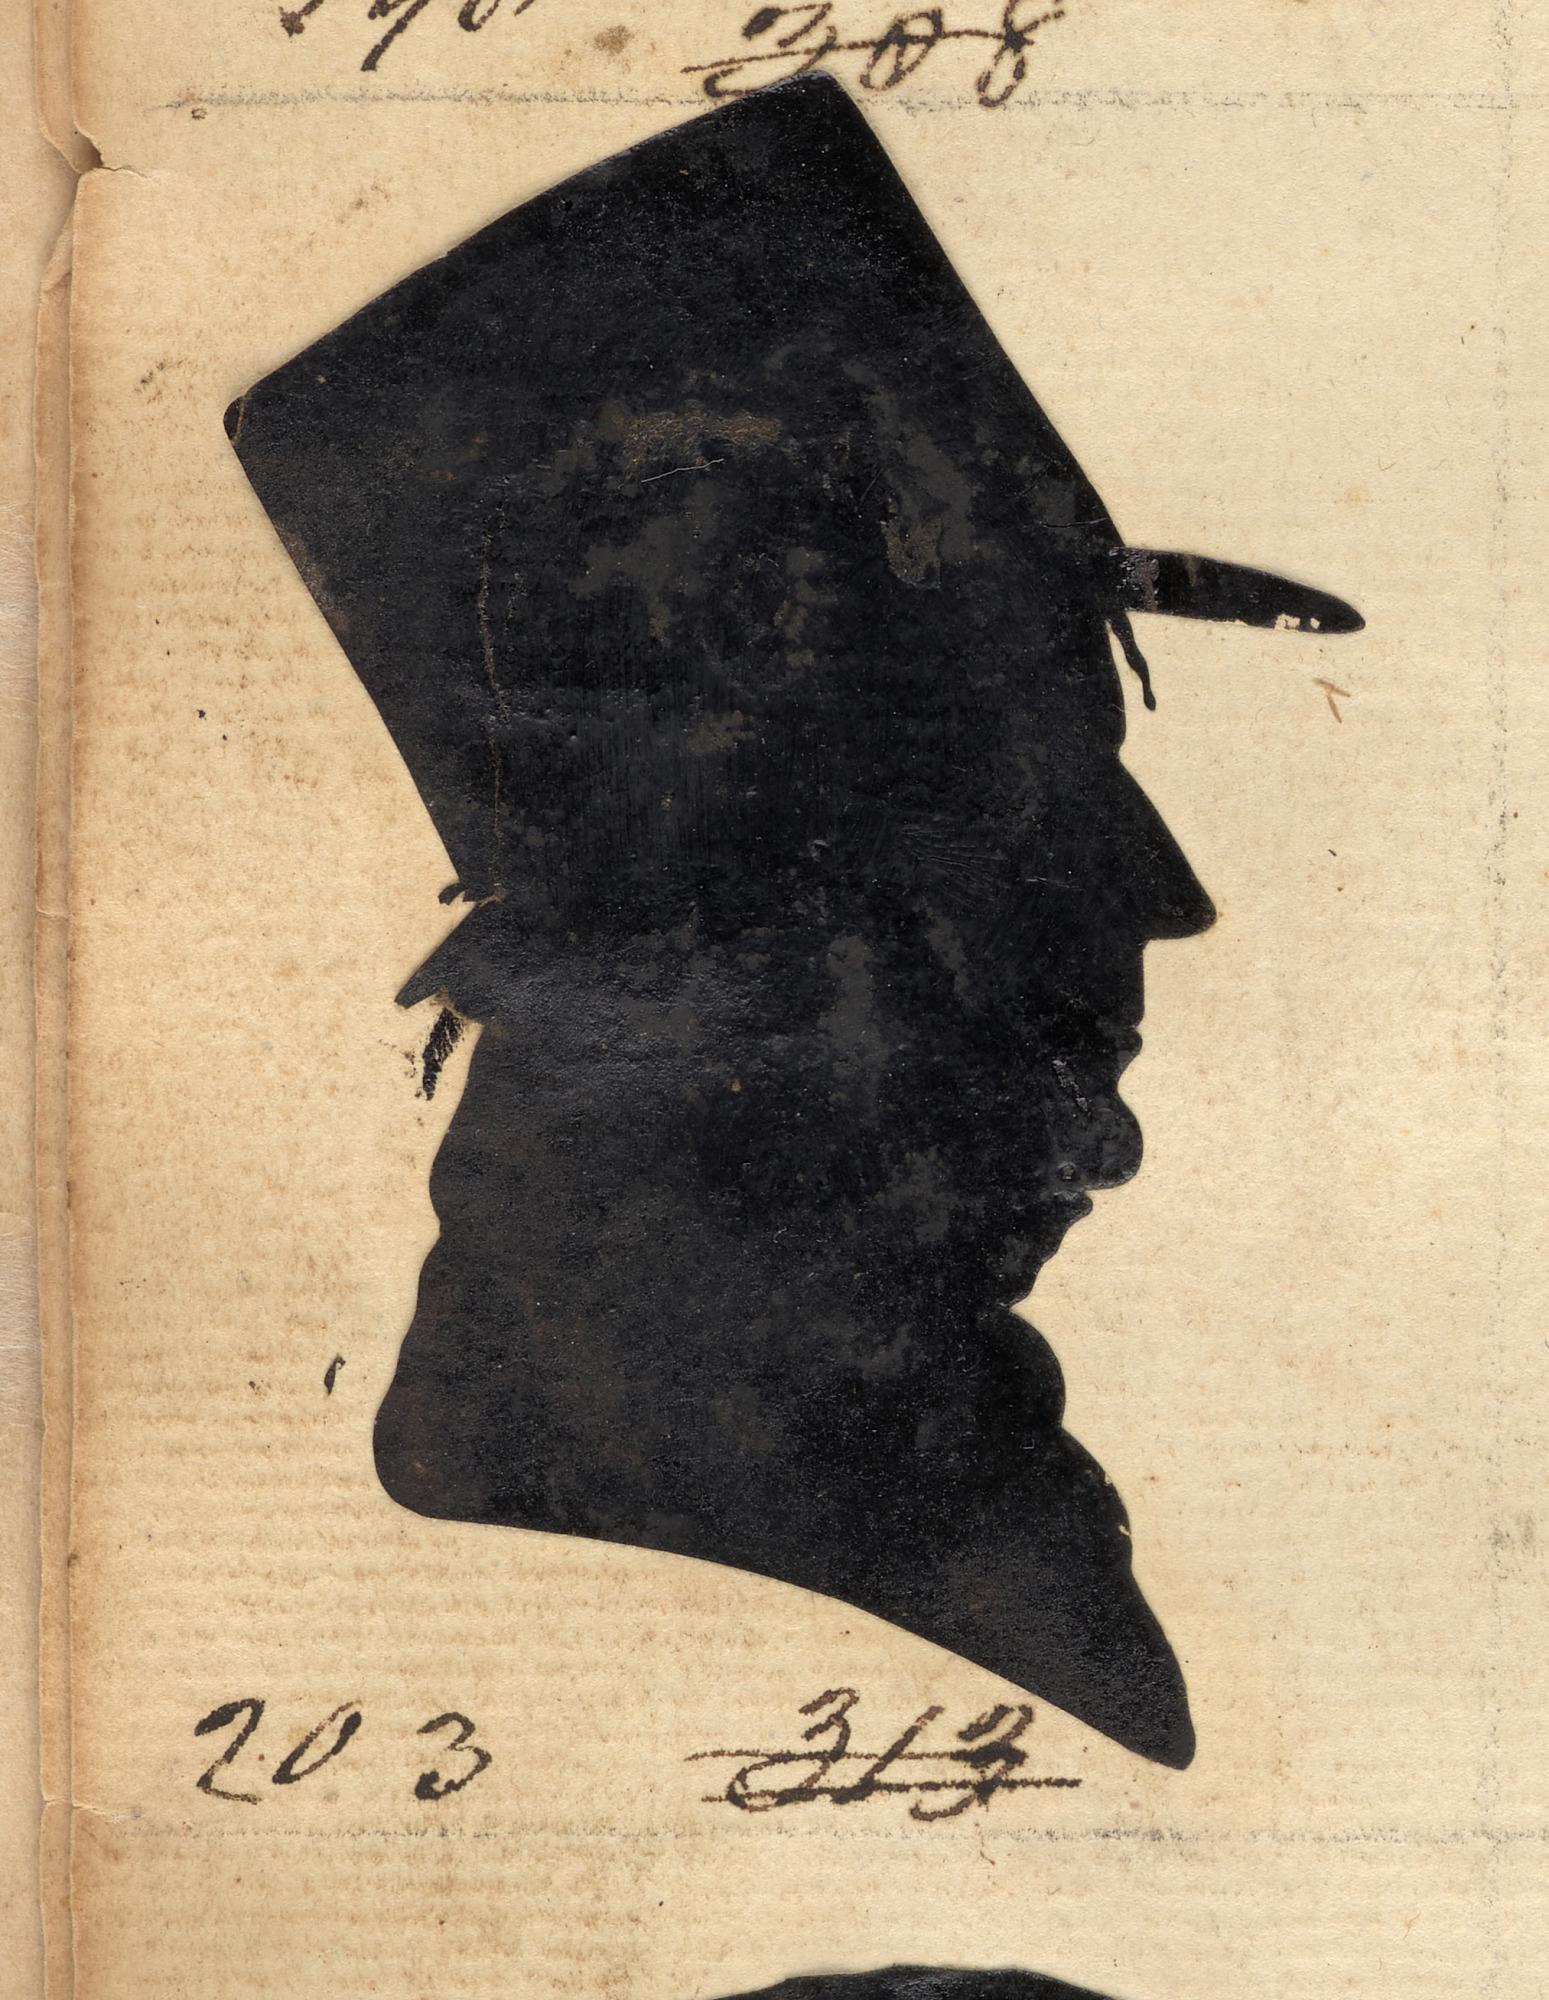 308
203 313